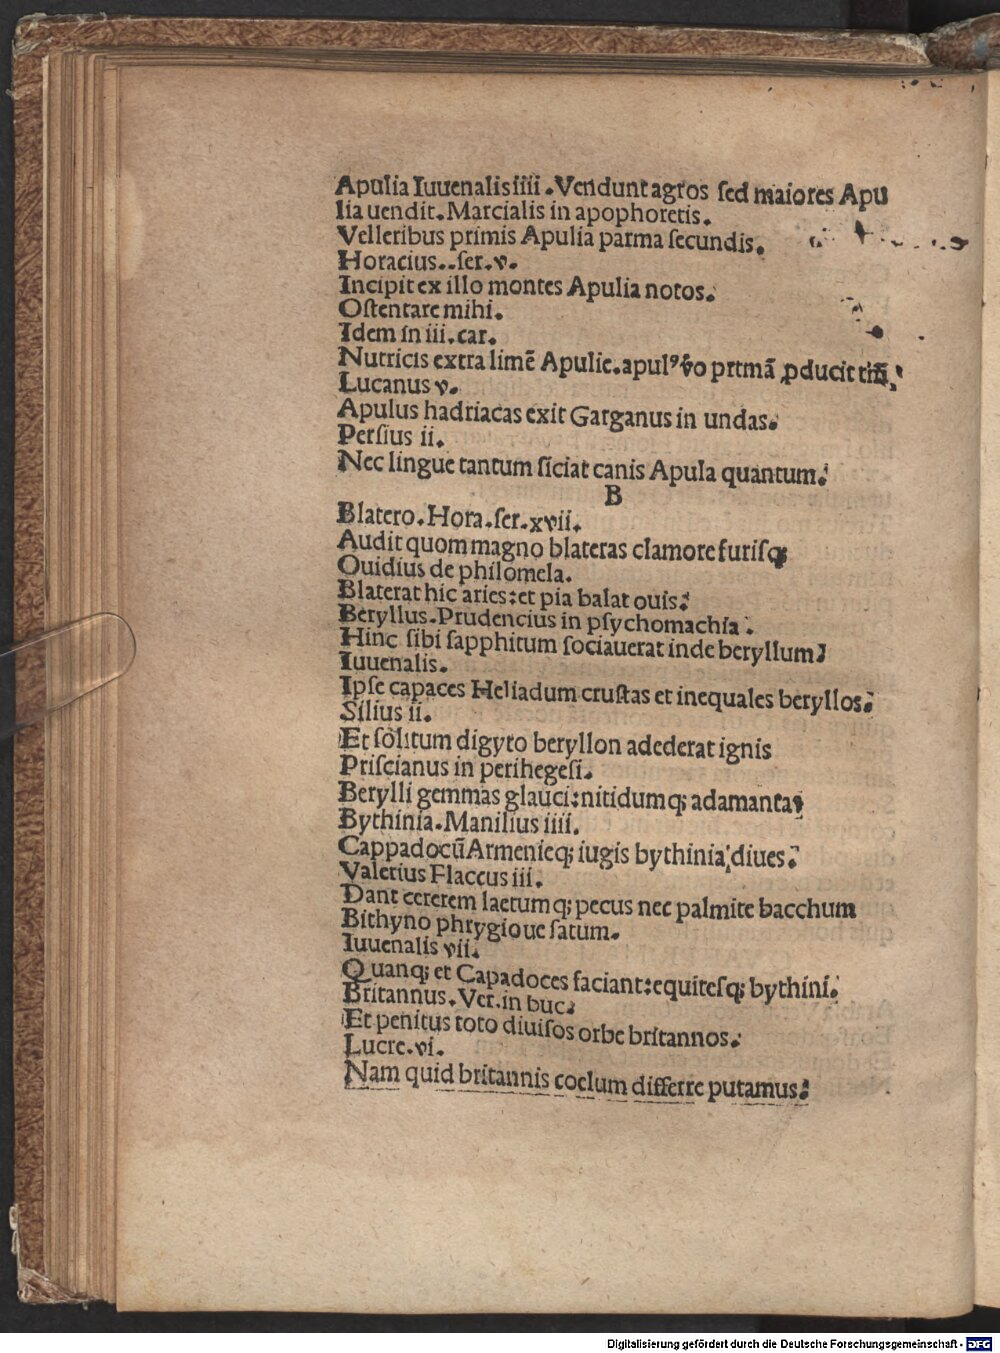 Apulia Iuuenalis iiii . Vendunt agros ſed maiores Apu
lia uendit. Marcialis in apophoretis.
Velleribus primis Apulia parma ſecundis.
Horacius..ſer.v.
Incipit ex illo montes Apulia notos.
Oſtentare mihi.
Idem in iii. car.
Nutricis extra limē Apulie. apulꝰ
Lucanus v.
Apulus hadriacas exit Garganus in undas.
Perſius ii.
Nec lingue tantum ſiciat canis Apula quantum.
B
Blatero. Hora. ſer. xvii.
Audit quom magno blateras clamore furiſqȝ
Ouidius de philomela.
Blaterat hic aries: et pia balat ouis.
Beryllus. Prudencius in pſychomachia.
Hinc ſibi ſapphirum ſociauerat inde beryllum
Iuuenalis.
Ipſe capaces Heliadum cruſtas et inequales beryllos.
Silius ii.
Et ſolitum digyro beryllon adederat ignis
Priſcianus in perihegeſi.
Berylli gemmas glauci: nitidumqȝ adamanta
Bythinia. Manilius iiii.
Cappadocū Armenieqȝ iugis bythinia diues.
Valerius Flaccus iii.
Dant cererem laetumqȝ pecus nec palmite bacchum
Bithyno phrygio ue ſatum.
Iuuenalis vii.
Quanqȝ et Capadoces faciant: equiteſqȝ bythini.
Britannus. Ver. in buc.
Et penitus toto diuiſos orbe britannos.
Lucre. vi.
Nam quid britannis coelum differre putamus.
Digitalisierung gefördert durch die Deutsche Forschungsgemeinschaft - DFG